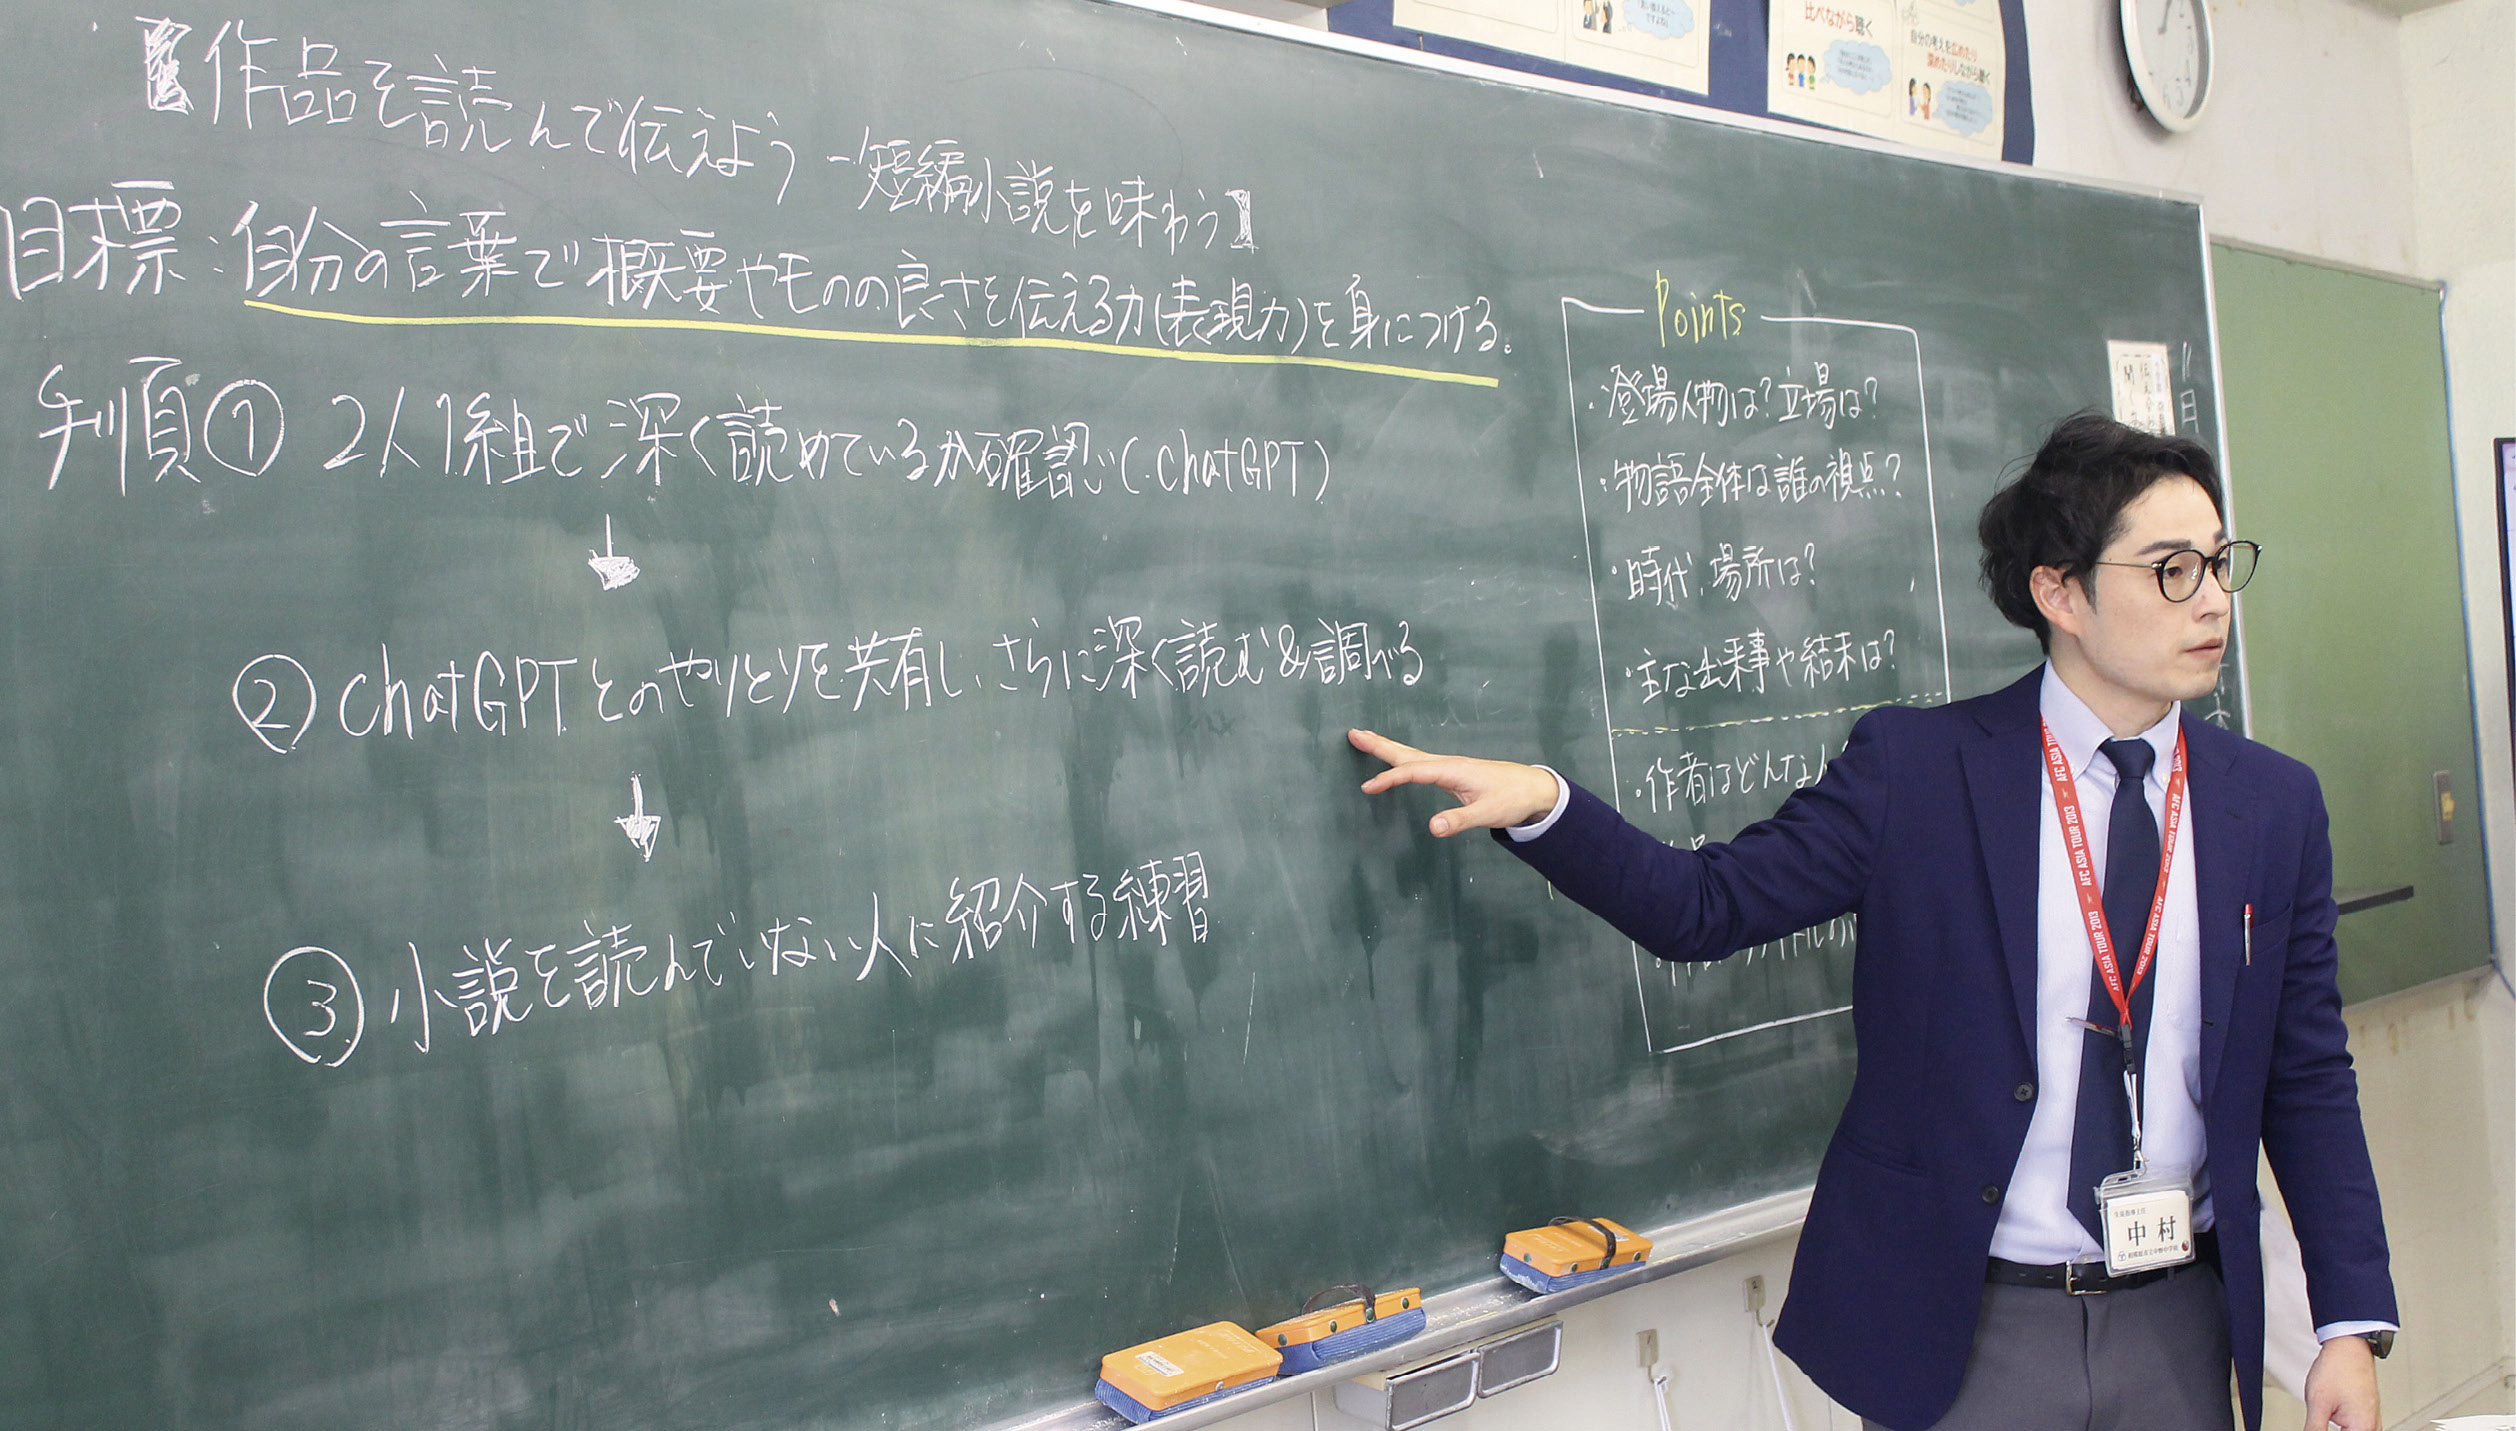 【作品を読んで伝えよう -短編小説を味わう】
目標:自分の言葉で概要やモノの良さを伝える力(表現力)を身につける。
手順① 2人1組で深く読めているか確認(ChatGPT)
② ChatGPTとのやりとりを共有し、さらに深く読む&調べる
③ 小説を読んでいない人に紹介する練習
Points
・登場人物は?立場は?
・物語全体は誰の視点?
・時代、場所は?
・主な出来事や結末は?
・作者はどんな人
比べながら聴く
自分の考えを広めたり
深めたりしながら聴く
日
AFC ASIA TOUR 2013
AFC ASIA TOUR 2013
AFC ASIA TOUR 2013
AFC ASIA TOUR 2013
中村